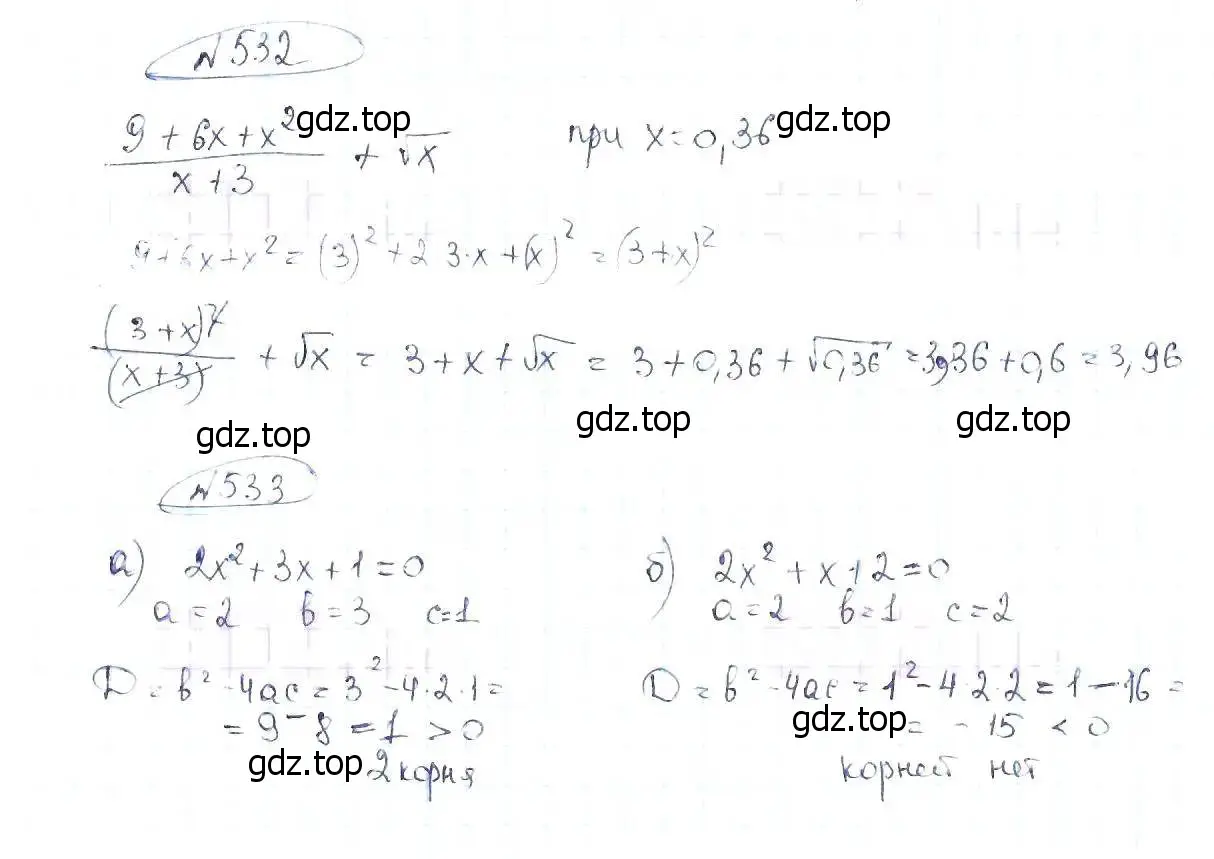 №532
(9 + 6x + x²)/(x + 3) + √x при x = 0,36
gdz.top gdz.top
9 + 6x + x² = (3)² + 2 3·x + (x)² = (3 + x)²
(3 + x)²/(x + 3) + √x = 3 + x + √x = 3 + 0,36 + √0,36 = 3,36 + 0,6 = 3,96
gdz.top gdz.top gdz.top
№533
а) 2x² + 3x + 1 = 0
a = 2 b = 3 c = 1
D = b² - 4ac = 3² - 4·2·1 =
= 9 - 8 = 1 > 0
gdz.top 2 корня
б) 2x² + x + 2 = 0
a = 2 b = 1 c = 2
D = b² - 4ac = 1² - 4·2·2 = 1 - 16 =
gdz.top = - 15 < 0
корней нет